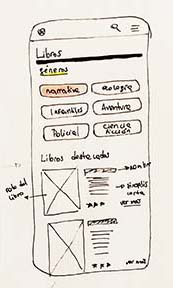 Libros
géneros
narrativa
ecología
Infantiles
Aventura
Policial
Ciencia
ficción
Libros destacados
nombre
foto del
libro
sinopsis
corta
ver más
ver más